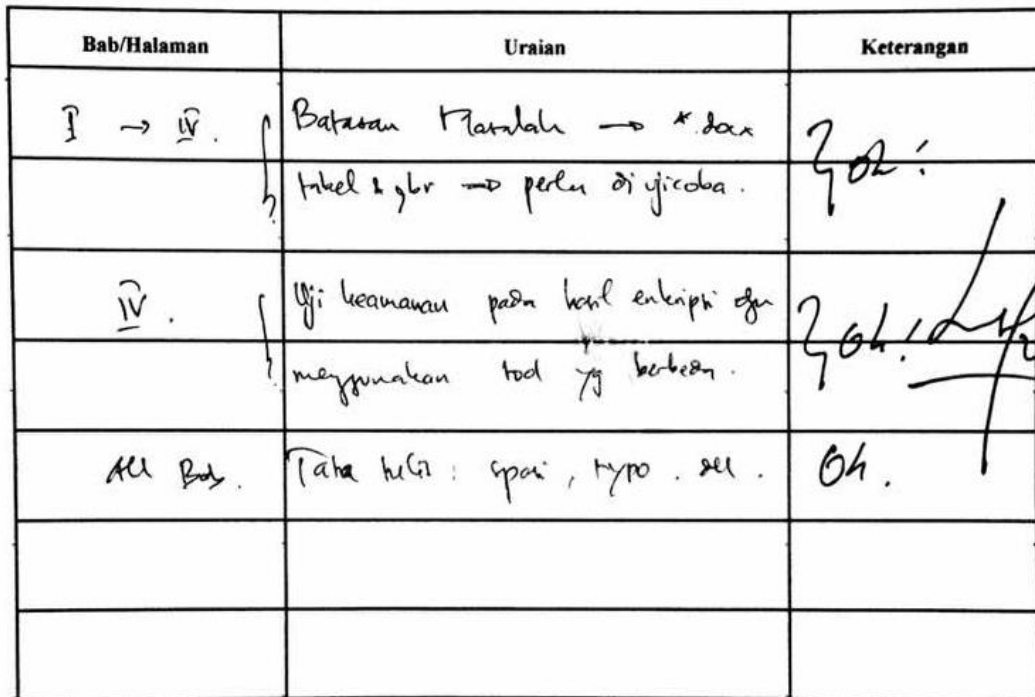 Bab/Halaman Uraian Keterangan
I → IV. Batasan Masalah → *.docx
tabel & gbr → perlu di ujicoba. Ok!
IV. Uji keamanan pada hasil enkripsi dgn Ok!
menggunakan tool yg berbeda.
All Bab. Tata tulis : spasi, typo. dll. Ok.